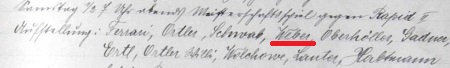 Samstag ½ 7 Uhr abends Meisterschaftsspiel gegen Rapid II
Aufstellung: Ferrari, Ortler, Schwab, Weber, Oberhöller, Gadner,
Ertl, Ortler Willi, Wolchowe, Sauter, Habtmann